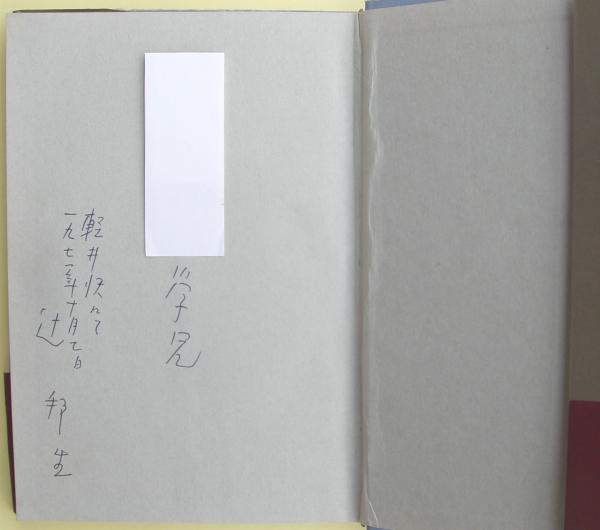 学兄
軽井沢にて
一九七一年十月七日
辻 邦生